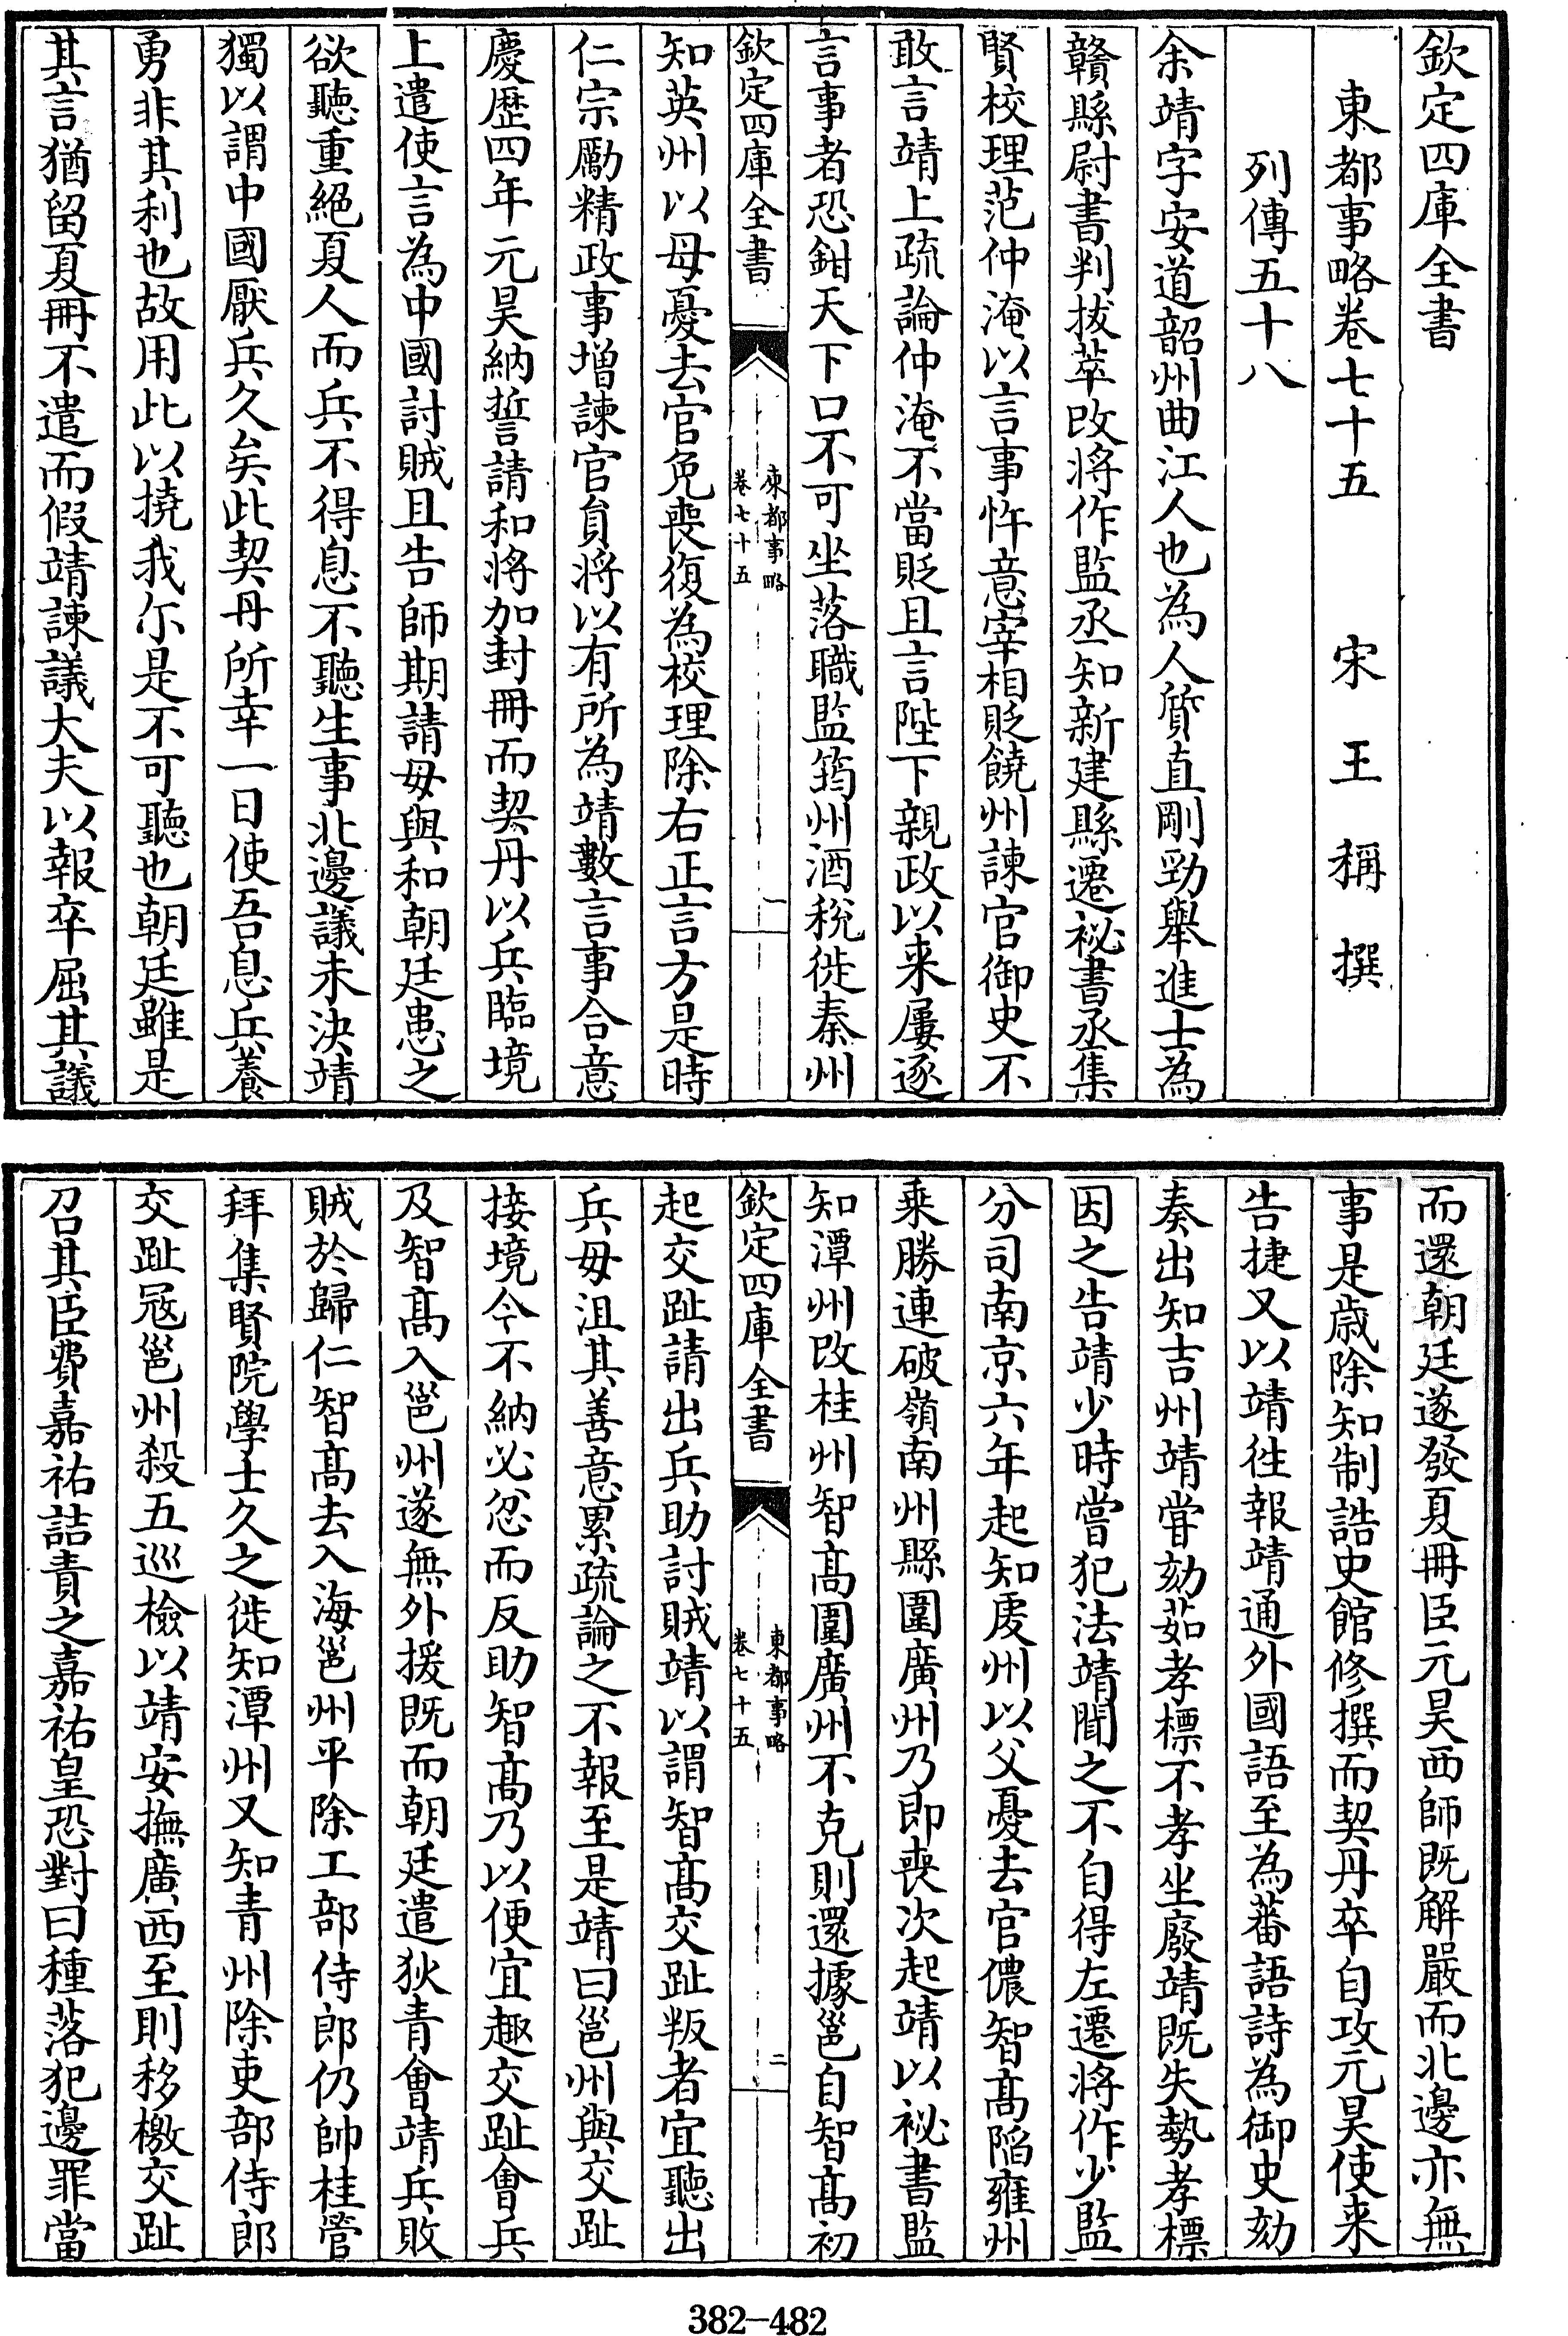 欽定四庫全書
東都事略卷七十五 宋 王 稱 撰
列傳五十八
余靖字安道韶州曲江人也為人質直剛勁舉進士為
贛縣尉書判拔萃改將作監丞知新建縣遷祕書丞集
賢校理范仲淹以言事忤意宰相貶饒州諫官御史不
敢言靖上疏論仲淹不當貶且言陛下親政以来屢逐
言事者恐鉗天下口不可坐落職監筠州酒稅徙泰州
欽定四庫全書
東都事略
卷七十五
一
知英州以母憂去官免喪復為校理除右正言方是時
仁宗勵精政事增諫官員將以有所為靖數言事合意
慶歷四年元昊納誓請和將加封冊而契丹以兵臨境
上遣使言為中國討賊且告師期請毋與和朝廷患之
欲聽重絕夏人而兵不得息不聽生事北邊議未決靖
獨以謂中國厭兵久矣此契丹所幸一日使吾息兵養
勇非其利也故用此以撓我尔是不可聽也朝廷雖是
其言猶留夏冊不遣而假靖諫議大夫以報卒屈其議
而還朝廷遂發夏冊臣元昊西師既解嚴而北邊亦無
事是歲除知制誥史館修撰而契丹卒自攻元昊使来
告捷又以靖徃報靖通外國語至為蕃語詩為御史劾
奏出知吉州靖甞劾茹孝標不孝坐廢靖既失勢孝標
因之告靖少時嘗犯法靖聞之不自得左遷將作少監
分司南京六年起知䖍州以父憂去官儂智髙陷雍州
乗勝連破嶺南州縣圍廣州乃即喪次起靖以祕書監
知潭州改桂州智髙圍廣州不克則還據邕自智髙初
欽定四庫全書
東都事略
卷七十五
二
起交趾請出兵助討賊靖以謂智髙交趾叛者宜聽出
兵毋沮其善意累疏論之不報至是靖曰邕州與交趾
接境今不納必忿而反助智髙乃以便宜趣交趾會兵
及智髙入邕州遂無外援既而朝廷遣狄青會靖兵敗
賊於歸仁智髙去入海邕州平除工部侍郎仍帥桂管
拜集賢院學士久之徙知潭州又知青州除吏部侍郎
交趾冦邕州殺五巡檢以靖安撫廣西至則移檄交趾
召其臣費嘉祐詰責之嘉祐皇恐對曰種落犯邊罪當
382-482